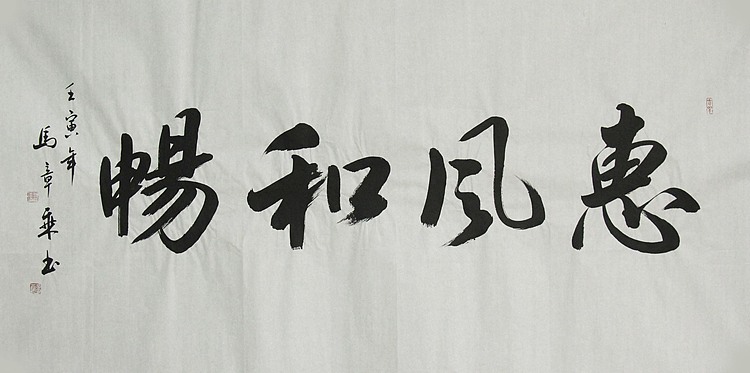 惠風和暢
壬寅年
馬章乘书